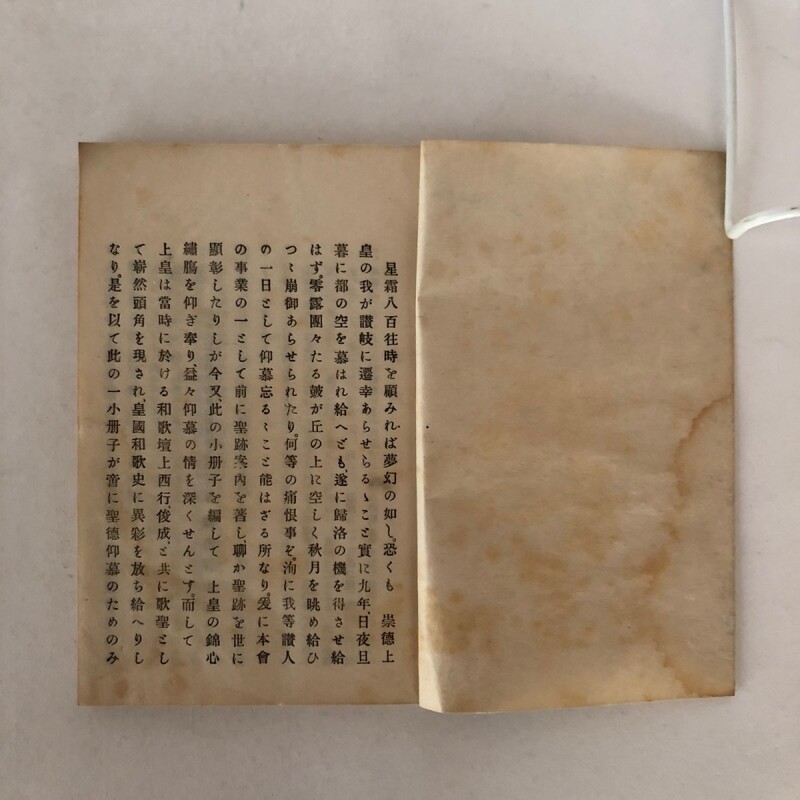 星霜八百往時を顧みれば夢幻の如し。恐くも　崇德上
皇の我が讃岐に遷幸あらせらるゝこと實に九年、日夜旦
暮に都の空を慕はれ給へども、遂に歸洛の機を得させ給
はず。零露團々たる皷が丘の上に空しく秋月を眺め給ひ
つゝ崩御あらせられたり。何等の痛恨事ぞ。洵に我等讃人
の一日として仰慕忘るゝこと能はざる所なり。爰に本會
の事業の一として前に聖跡案內を著し、聊か聖跡を世に
顯彰したりしが今又、此の小册子を編して　上皇の錦心
繡膓を仰ぎ奉り、益々仰慕の情を深くせんとす。而して
上皇は當時に於ける和歌壇上西行、俊成、と共に歌聖とし
て嶄然頭角を現され、皇國和歌史に異彩を放ち給へりし
なり。是を以て此の一小册子が啻に聖德仰慕のためのみ